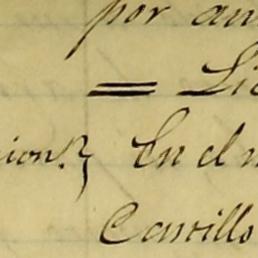 por an
= Lic
ion.} En el n
Carrillo